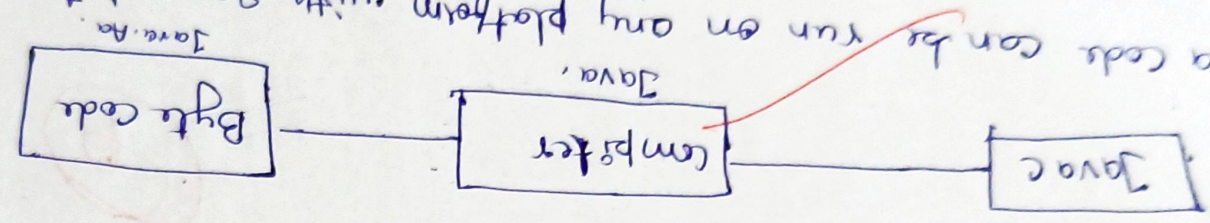 Java c Compiler Byte Code
Java. Java.Aa.
a code can be run on any platform with